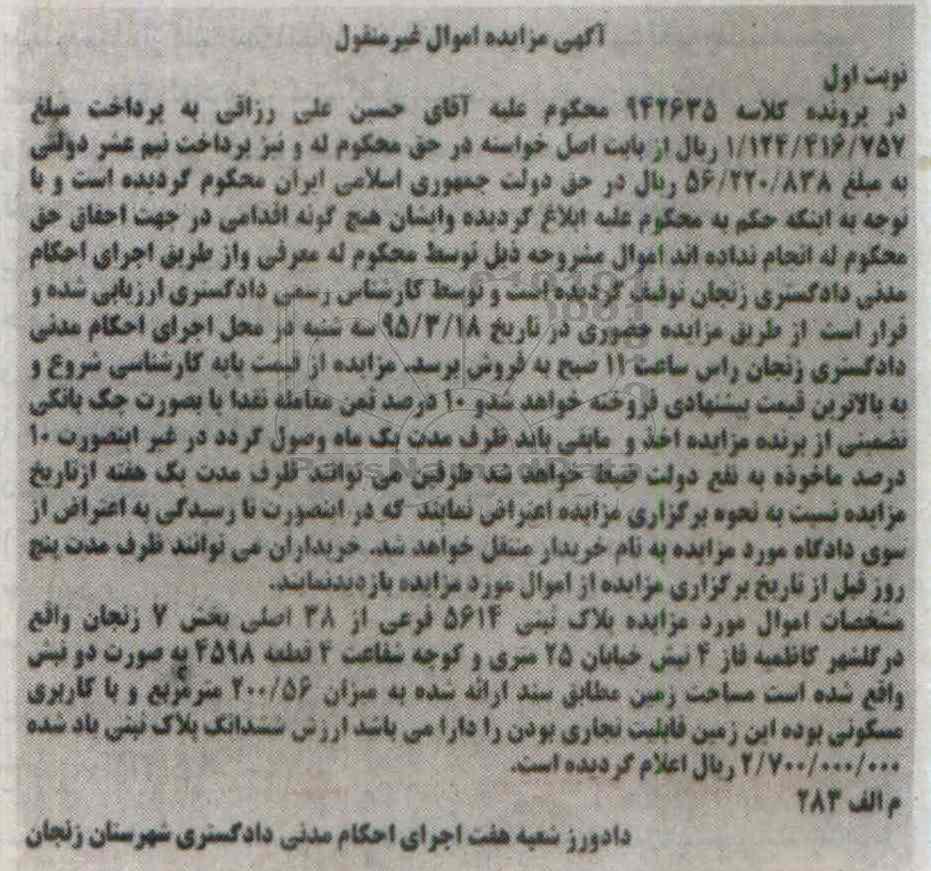 آگهی مزایده اموال غیرمنقول
نوبت اول
در پرونده کلاسه ۹۴۲۶۳۵ محکوم علیه آقای حسین علی رزاقی به پرداخت مبلغ
۱/۱۲۴/۴۱۶/۷۵۷ ریال از بابت اصل خواسته در حق محکوم له و نیز پرداخت نیم عشر دولتی
به مبلغ ۵۶/۲۲۰/۸۳۸ ریال در حق دولت جمهوری اسلامی ایران محکوم گردیده است و با
توجه به اینکه حکم به محکوم علیه ابلاغ گردیده وایشان هیچ گونه اقدامی در جهت احقاق حق
محکوم له انجام نداده اند اموال مشروحه ذیل توسط محکوم له معرفی واز طریق اجرای احکام
مدنی دادگستری زنجان توقیف گردیده است و توسط کارشناس رسمی دادگستری ارزیابی شده و
قرار است از طریق مزایده حضوری در تاریخ ۹۵/۳/۱۸ سه شنبه در محل اجرای احکام مدنی
دادگستری زنجان راس ساعت ۱۱ صبح به فروش برسد. مزایده از قیمت پایه کارشناسی شروع و
به بالاترین قیمت پیشنهادی فروخته خواهد شدو ۱۰ درصد ثمن معامله نقدا یا بصورت چک بانکی
تضمینی از برنده مزایده اخذ و مابقی باید ظرف مدت یک ماه وصول گردد در غیر اینصورت ۱۰
درصد ماخوذه به نفع دولت ضبط خواهد شد طرفین می توانند ظرف مدت یک هفته ازتاریخ
مزایده نسبت به نحوه برگزاری مزایده اعتراض نمایند که در اینصورت تا رسیدگی به اعتراض از
سوی دادگاه مورد مزایده به نام خریدار منتقل خواهد شد. خریداران می توانند ظرف مدت پنج
روز قبل از تاریخ برگزاری مزایده از اموال مورد مزایده بازدیدنمایند.
مشخصات اموال مورد مزایده پلاک ثبتی ۵۶۱۴ فرعی از ۳۸ اصلی بخش ۷ زنجان واقع
درگلشهر کاظمیه فاز ۴ نبش خیابان ۲۵ متری و کوچه شفاعت ۲ قطعه ۴۵۹۸ به صورت دو نبش
واقع شده است مساحت زمین مطابق سند ارائه شده به میزان ۲۰۰/۵۶ مترمربع و با کاربری
مسکونی بوده این زمین قابلیت تجاری بودن را دارا می باشد ارزش ششدانگ پلاک ثبتی یاد شده
۲/۷۰۰/۰۰۰/۰۰۰ ریال اعلام گردیده است.
م الف ۲۸۳
دادورز شعبه هفت اجرای احکام مدنی دادگستری شهرستان زنجان